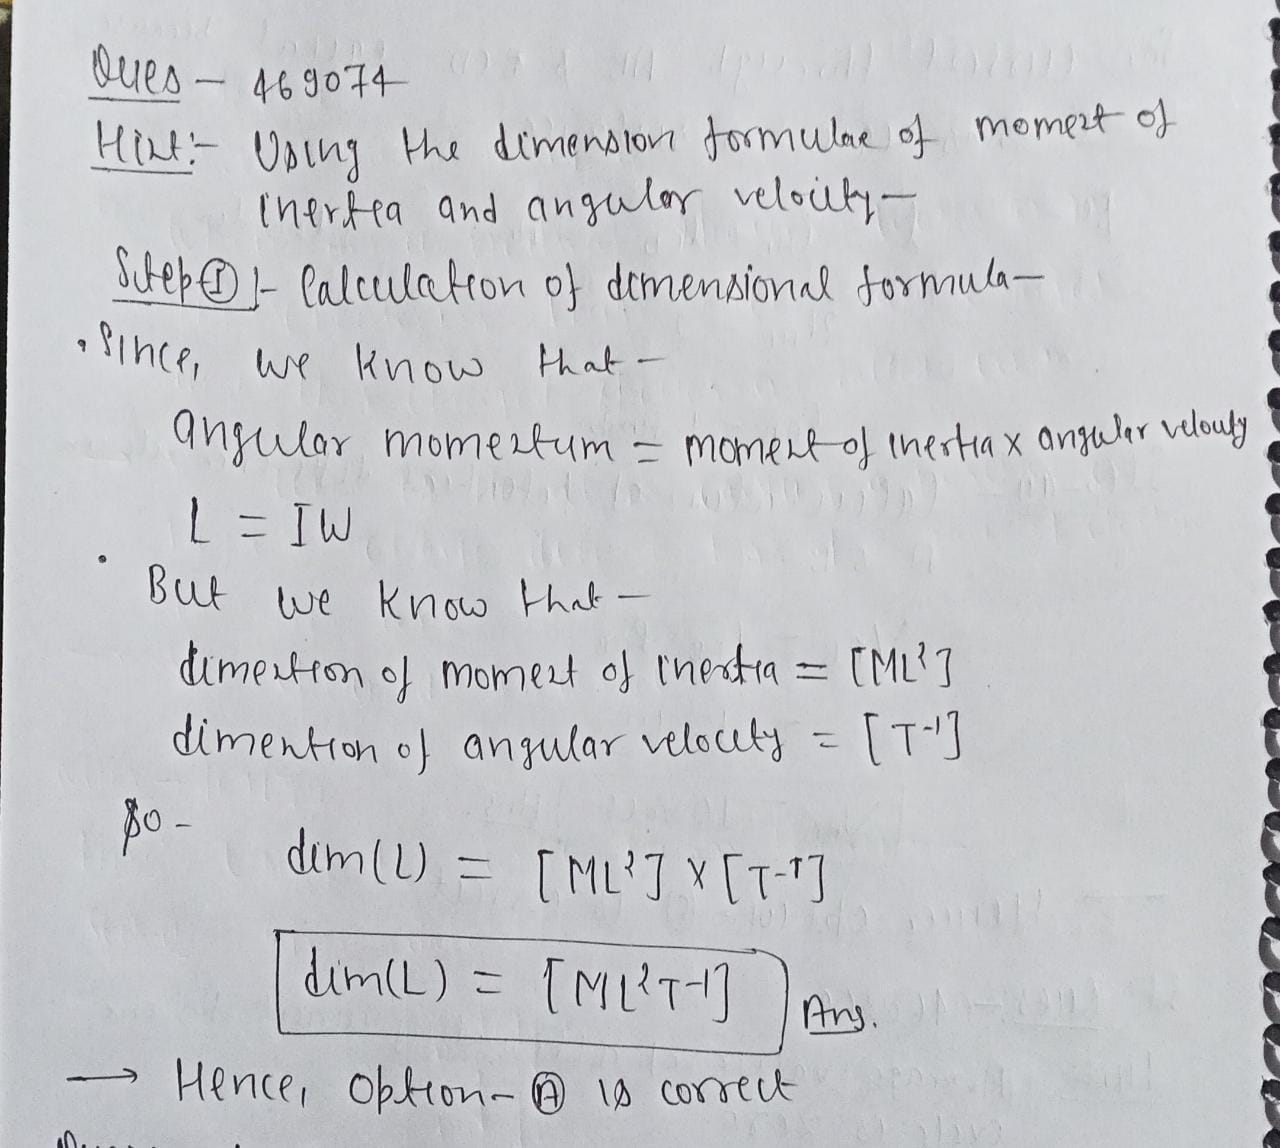 Ques - 469074
Hint:- Using the dimension formulae of moment of
inertia and angular velocity-
Step ① :- Calculation of dimensional formula-
• Since, we know that -
angular momentum = moment of inertia x angular velocity
L = IW
• But we know that -
dimention of moment of inertia = [ML²]
dimention of angular velocity = [T-1]
So -
dim(L) = [ML²] x [T-1]
dim(L) = [ML²T-1] Ans.
→ Hence, option- Ⓐ is correct